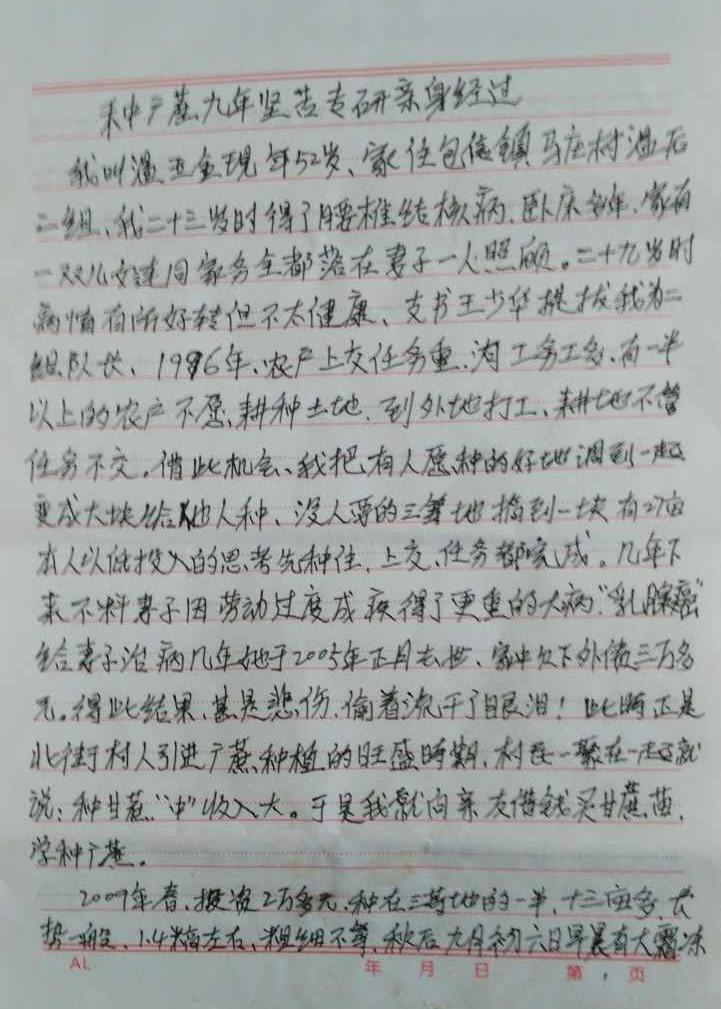 种广蔗九年坚苦专研亲身经过
我叫温亚金现年52岁、家住包信镇马庄村温后
二组、我二十三岁时得了腰椎结核病、卧床多年、家有
一双儿女连同家务全都落在妻子一人照顾。二十九岁时
病情有所好转但不太健康、支书王少华提拔我为二
组队长、1996年、农户上交任务重、沟工务工多、有一半
以上的农户不愿耕种土地、到外地打工、耕地不管
任务不交。借此机会、我把有人愿种的好地调到一起
变成大块给他人种、没人要的三等地搞到一块有27亩
本人以低投入的思考先种住、上交、任务都完成。几年下
来不料妻子因劳动过度成疾得了更重的大病“乳腺癌”
给妻子治病几年她于2005年正月去世、家中欠下外债三万多
元。得此结果、甚是悲伤、偷着流干了眼泪！此时正是
北街村人引进广蔗种植的旺盛时期、村民一聚在一起就
说：种甘蔗“中”收入大。于是我就向亲友借钱买甘蔗苗、
学种广蔗。
2009年春、投资2万多元、种在三等地的一半、十三亩多、长
势一般、1.4米高左右、粗细不等、秋后九月初六日早晨有大霜冻
AL 年 月 日 第 页